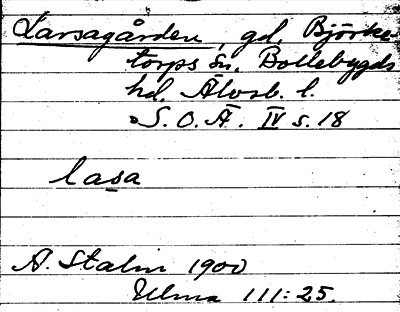 Larsagården, gd, Björke-
torps sn. Bollebygds
hd. Älvsb. l.
S.O.Ä. IV s. 18
lasa
A. Stalin 1900
Ulma 111:25.